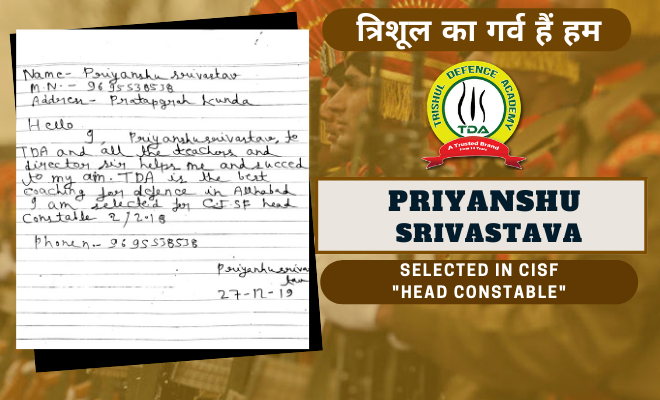 Name- Priyanshu srivastav
M.N.- 9695538538
Address- Pratapgrah Kunda
Hello
I, Priyanshu srivastav, to
TDA and all the teachers and
director sir helps me and succed
to my aim. TDA is the best
coaching for defence in Allhabad
I am selected for CISF head
Constable 2/2018
Phonen.- 9695538538
Priyanshu sriva
tav
27-12-19
त्रिशूल का गर्व हैं हम
TRISHUL DEFENCE ACADEMY
TDA
A Trusted Brand
PRIYANSHU
SRIVASTAVA
SELECTED IN CISF
"HEAD CONSTABLE"